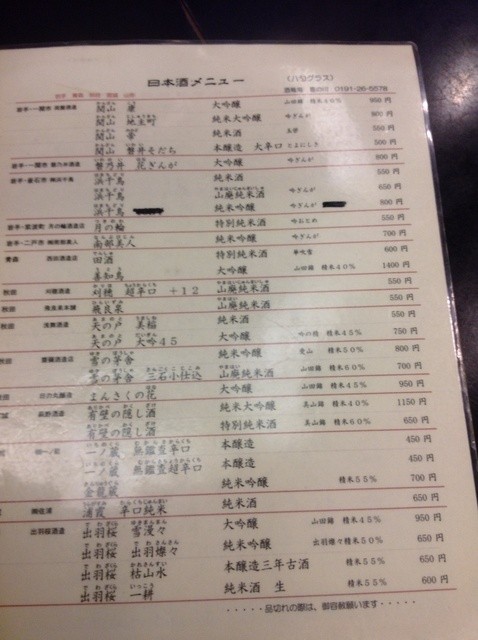 日本酒メニュー （八勺グラス）
岩手 青森 秋田 宮城 山形 0191-26-5578
岩手・一関市 関山 大吟醸 山田錦 精米40% 950 円
関山 純米大吟醸 吟ぎんが 800 円
関山 帝 純米酒 550 円
関山 磐井そだち 本醸造 大辛口 とよにしき 500 円
岩手・一関市 磐乃井酒造 磐乃井 花ぎんが 大吟醸 吟ぎんが 800 円
岩手・釜石市 浜千鳥 純米酒 550 円
浜千鳥 山廃純米酒 吟ぎんが 650 円
浜千鳥 純米吟醸 吟ぎんが 800 円
岩手・紫波町 月の輪酒造店 月の輪 特別純米酒 吟おとめ 550 円
岩手・二戸市 南部美人 南部美人 純米吟醸 吟ぎんが 700 円
青森 西田酒造店 田酒 特別純米酒 華吹雪 600 円
喜知鳥 大吟醸 山田錦 精米40% 1400 円
秋田 刈穂酒造 刈穂 超辛口 +12 山廃純米酒 550 円
秋田 飛良泉本舗 飛良泉 山廃純米酒 550 円
秋田 浅舞酒造 天の戸 美稲 純米酒 550 円
天の戸 大吟45 大吟醸 吟の精 精米45% 750 円
秋田 齋彌酒造店 雪の茅舎 純米吟醸 精米50% 800 円
雪の茅舎 三石小仕込 山廃純米酒 山田錦 精米60% 700 円
秋田 日の丸醸造 まんさくの花 大吟醸 山田錦 精米45% 950 円
萩野酒造 有壁の隠し酒 純米大吟醸 美山錦 精米40% 1150 円
有壁の隠し酒 特別純米酒 美山錦 精米60% 650 円
一ノ蔵 無鑑査辛口 本醸造 450 円
一ノ蔵 無鑑査超辛口 本醸造 450 円
金龍蔵 純米吟醸 精米55% 700 円
㈱佐浦 浦霞 辛口純米 純米酒 650 円
出羽桜酒造 出羽桜 雪漫々 大吟醸 山田錦 精米45% 950 円
出羽桜 出羽燦々 純米吟醸 出羽燦々 精米50% 650 円
出羽桜 枯山水 本醸造三年古酒 精米55% 650 円
出羽桜 一耕 純米酒 生 精米55% 600 円
・・・・・品切れの際は、御容赦願います・・・・・